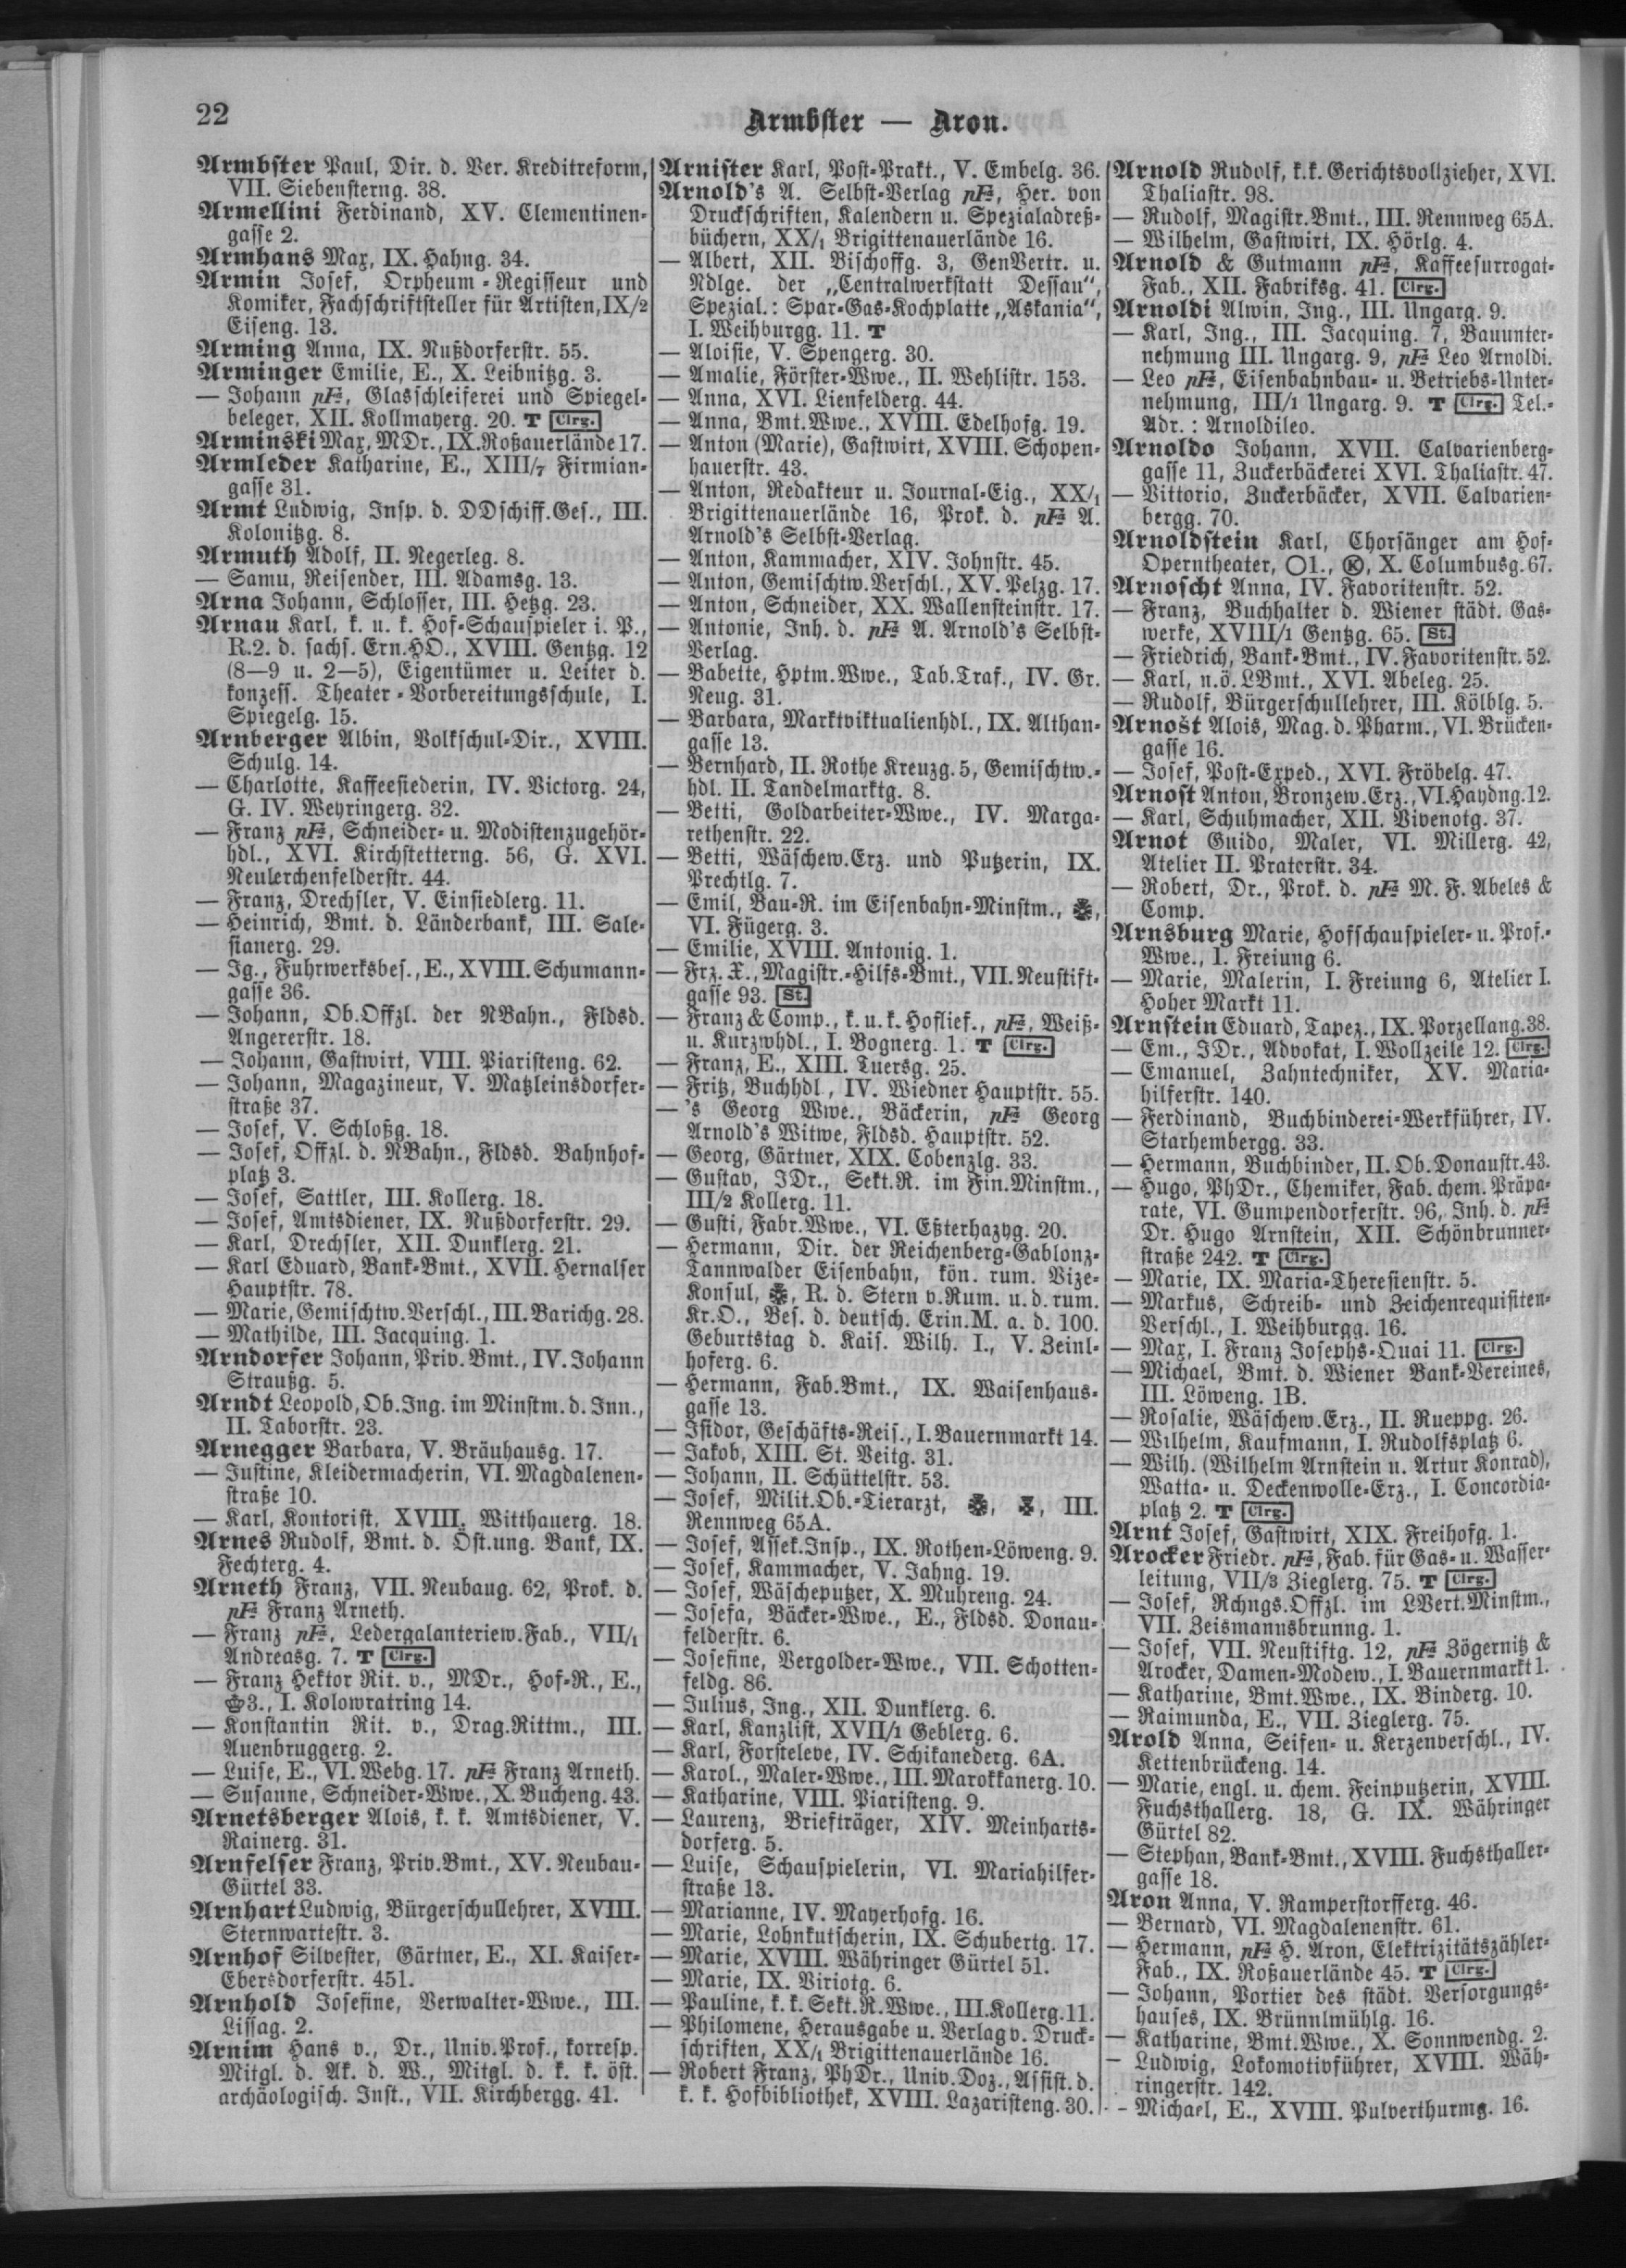 22
Armbster — Aron.
Armbster Paul, Dir. d. Ver. Kreditreform,
VII. Siebensterng. 38.
Armellini Ferdinand, XV. Clementinen-
gasse 2.
Armhans Max, IX. Hahng. 34.
Armin Josef, Orpheum-Regisseur und
Komiker, Fachschriftsteller für Artisten, IX/2
Eiseng. 13.
Arming Anna, IX. Nußdorferstr. 55.
Arminger Emilie, E., X. Leibnitzg. 3.
— Johann pFa, Glasschleiferei und Spiegel-
beleger, XII. Kollmayerg. 20. T Clrg.
Arminski Max, MDr., IX. Roßauerlände 17.
Armleder Katharine, E., XIII/7 Firmian-
gasse 31.
Armt Ludwig, Insp. d. DDschiff.Ges., III.
Kolonitzg. 8.
Armuth Adolf, II. Negerleg. 8.
— Samu, Reisender, III. Adamsg. 13.
Arna Johann, Schlosser, III. Hetzg. 23.
Arnau Karl, k. u. k. Hof-Schauspieler i. P.,
R.2. d. sachs. Ern.HO., XVIII. Gentzg. 12
(8—9 u. 2—5), Eigentümer u. Leiter d.
konzess. Theater-Vorbereitungsschule, I.
Spiegelg. 15.
Arnberger Albin, Volkschul-Dir., XVIII.
Schulg. 14.
— Charlotte, Kaffeesiederin, IV. Victorg. 24,
G. IV. Weyringerg. 32.
— Franz pFa, Schneider- u. Modistenzugehör-
hdl., XVI. Kirchstetterng. 56, G. XVI.
Neulerchenfelderstr. 44.
— Franz, Drechsler, V. Einsiedlerg. 11.
— Heinrich, Bmt. d. Länderbank, III. Sale-
sianerg. 29.
— Ig., Fuhrwerksbes., E., XVIII. Schumann-
gasse 36.
— Johann, Ob.Offzl. der NBahn., Fldsd.
Angererstr. 18.
— Johann, Gastwirt, VIII. Piaristeng. 62.
— Johann, Magazineur, V. Matzleinsdorfer-
straße 37.
— Josef, V. Schloßg. 18.
— Josef, Offzl. d. NBahn., Fldsd. Bahnhof-
platz 3.
— Josef, Sattler, III. Kollerg. 18.
— Josef, Amtsdiener, IX. Nußdorferstr. 29.
— Karl, Drechsler, XII. Dunklerg. 21.
— Karl Eduard, Bank-Bmt., XVII. Hernalser
Hauptstr. 78.
— Marie, Gemischtw.Verschl., III. Barichg. 28.
— Mathilde, III. Jacquing. 1.
Arndorfer Johann, Priv. Bmt., IV. Johann
Straußg. 5.
Arndt Leopold, Ob.Ing. im Minstm. d. Inn.,
II. Taborstr. 23.
Arnegger Barbara, V. Bräuhausg. 17.
— Justine, Kleidermacherin, VI. Magdalenen-
straße 10.
— Karl, Kontorist, XVIII. Witthauerg. 18.
Arnes Rudolf, Bmt. d. Öst.ung. Bank, IX.
Fechterg. 4.
Arneth Franz, VII. Neubaug. 62, Prok. d.
pFa Franz Arneth.
— Franz pFa, Ledergalanteriew.Fab., VII/1
Andreasg. 7. T Clrg.
— Franz Hektor Rit. v., MDr., Hof-R., E.,
3., I. Kolowratring 14.
— Konstantin Rit. v., Drag.Rittm., III.
Auenbruggerg. 2.
— Luise, E., VI. Webg. 17. pFa Franz Arneth.
— Susanne, Schneider-Wwe., X. Bucheng. 43.
Arnetsberger Alois, k. k. Amtsdiener, V.
Rainerg. 31.
Arnfelser Franz, Priv.Bmt., XV. Neubau-
Gürtel 33.
Arnhart Ludwig, Bürgerschullehrer, XVIII.
Sternwartestr. 3.
Arnhof Silvester, Gärtner, E., XI. Kaiser-
Ebersdorferstr. 451.
Arnhold Josefine, Verwalter-Wwe., III.
Lissag. 2.
Arnim Hans v., Dr., Univ.Prof., korresp.
Mitgl. d. Ak. d. W., Mitgl. d. k. k. öst.
archäologisch. Inst., VII. Kirchbergg. 41.
Arnister Karl, Post-Prakt., V. Embelg. 36.
Arnold's A. Selbst-Verlag pFa, Her. von
Druckschriften, Kalendern u. Spezialadreß-
büchern, XX/1 Brigittenauerlände 16.
— Albert, XII. Bischoffg. 3, GenVertr. u.
Ndlge. der „Centralwerkstatt Dessau",
Spezial.: Spar-Gas-Kochplatte „Askania",
I. Weihburgg. 11. T
— Aloisie, V. Spengerg. 30.
— Amalie, Förster-Wwe., II. Wehlistr. 153.
— Anna, XVI. Lienfelderg. 44.
— Anna, Bmt.Wwe., XVIII. Edelhofg. 19.
— Anton (Marie), Gastwirt, XVIII. Schopen-
hauerstr. 43.
— Anton, Redakteur u. Journal-Eig., XX/1
Brigittenauerlände 16, Prok. d. pFa A.
Arnold's Selbst-Verlag.
— Anton, Kammacher, XIV. Johnstr. 45.
— Anton, Gemischtw.Verschl., XV. Pelzg. 17.
— Anton, Schneider, XX. Wallensteinstr. 17.
— Antonie, Inh. d. pFa A. Arnold's Selbst-
Verlag.
— Babette, Hptm.Wwe., Tab.Traf., IV. Gr.
Neug. 31.
— Barbara, Marktviktualienhdl., IX. Althan-
gasse 13.
— Bernhard, II. Rothe Kreuzg. 5, Gemischtw.-
hdl. II. Tandelmarktg. 8.
— Betti, Goldarbeiter-Wwe., IV. Marga-
rethenstr. 22.
— Betti, Wäschew.Erz. und Putzerin, IX.
Prechtlg. 7.
— Emil, Bau-R. im Eisenbahn-Minstm., ,
VI. Fügerg. 3.
— Emilie, XVIII. Antonig. 1.
— Frz. X., Magistr.-Hilfs-Bmt., VII. Neustift-
gasse 93. St.
— Franz & Comp., k. u. k. Hoflief., pFa, Weiß-
u. Kurzwhdl., I. Bognerg. 1. T Clrg.
— Franz, E., XIII. Tuersg. 25.
— Fritz, Buchhdl, IV. Wiedner Hauptstr. 55.
— 's Georg Wwe., Bäckerin, pFa Georg
Arnold's Witwe, Fldsd. Hauptstr. 52.
— Georg, Gärtner, XIX. Cobenzlg. 33.
— Gustav, JDr., Sekt.R. im Fin.Minstm.,
III/2 Kollerg. 11.
— Gusti, Fabr.Wwe., VI. Eßterhazyg. 20.
— Hermann, Dir. der Reichenberg-Gablonz-
Tannwalder Eisenbahn, kön. rum. Vize-
Konsul, , R. d. Stern v. Rum. u. d. rum.
Kr.O., Bes. d. deutsch. Erin.M. a. d. 100.
Geburtstag d. Kais. Wilh. I., V. Zeinl-
hoferg. 6.
— Hermann, Fab.Bmt., IX. Waisenhaus-
gasse 13.
— Isidor, Geschäfts-Reis., I. Bauernmarkt 14.
— Jakob, XIII. St. Veitg. 31.
— Johann, II. Schüttelstr. 53.
— Josef, Milit.Ob.-Tierarzt, , , III.
Rennweg 65A.
— Josef, Assek.Insp., IX. Rothen-Löweng. 9.
— Josef, Kammacher, V. Jahng. 19.
— Josef, Wäscheputzer, X. Muhreng. 24.
— Josefa, Bäcker-Wwe., E., Fldsd. Donau-
felderstr. 6.
— Josefine, Vergolder-Wwe., VII. Schotten-
feldg. 86.
— Julius, Ing., XII. Dunklerg. 6.
— Karl, Kanzlist, XVII/1 Geblerg. 6.
— Karl, Forsteleve, IV. Schikanederg. 6A.
— Karol., Maler-Wwe., III. Marokkanerg. 10.
— Katharine, VIII. Piaristeng. 9.
— Laurenz, Briefträger, XIV. Meinharts-
dorferg. 5.
— Luise, Schauspielerin, VI. Mariahilfer-
straße 13.
— Marianne, IV. Mayerhofg. 16.
— Marie, Lohnkutscherin, IX. Schubertg. 17.
— Marie, XVIII. Währinger Gürtel 51.
— Marie, IX. Viriotg. 6.
— Pauline, k. k. Sekt.R.Wwe., III. Kollerg. 11.
— Philomene, Herausgabe u. Verlag v. Druck-
schriften, XX/1 Brigittenauerlände 16.
— Robert Franz, PhDr., Univ.Doz., Assist. d.
k. k. Hofbibliothek, XVIII. Lazaristeng. 30.
Arnold Rudolf, k.k. Gerichtsvollzieher, XVI.
Thaliastr. 98.
— Rudolf, Magistr.Bmt., III. Rennweg 65A.
— Wilhelm, Gastwirt, IX. Hörlg. 4.
Arnold & Gutmann pFa, Kaffeesurrogat-
Fab., XII. Fabriksg. 41. Clrg.
Arnoldi Alwin, Ing., III. Ungarg. 9.
— Karl, Ing., III. Jacquing. 7, Bauunter-
nehmung III. Ungarg. 9, pFa Leo Arnoldi.
— Leo pFa, Eisenbahnbau- u. Betriebs-Unter-
nehmung, III/1 Ungarg. 9. T Clrg. Tel.-
Adr.: Arnoldileo.
Arnoldo Johann, XVII. Calvarienberg-
gasse 11, Zuckerbäckerei XVI. Thaliastr. 47.
— Vittorio, Zuckerbäcker, XVII. Calvarien-
bergg. 70.
Arnoldstein Karl, Chorsänger am Hof-
Operntheater, ◯1., Ⓚ, X. Columbusg. 67.
Arnoscht Anna, IV. Favoritenstr. 52.
— Franz, Buchhalter d. Wiener städt. Gas-
werke, XVIII/1 Gentzg. 65. St.
— Friedrich, Bank-Bmt., IV. Favoritenstr. 52.
— Karl, n.ö. LBmt., XVI. Abeleg. 25.
— Rudolf, Bürgerschullehrer, III. Kölblg. 5.
Arnošt Alois, Mag. d. Pharm., VI. Brücken-
gasse 16.
— Josef, Post-Exped., XVI. Fröbelg. 47.
Arnost Anton, Bronzew.Erz., VI. Haydng. 12.
— Karl, Schuhmacher, XII. Vivenotg. 37.
Arnot Guido, Maler, VI. Millerg. 42,
Atelier II. Praterstr. 34.
— Robert, Dr., Prok. d. pFa M. F. Abeles &
Comp.
Arnsburg Marie, Hofschauspieler- u. Prof.-
Wwe., I. Freiung 6.
— Marie, Malerin, I. Freiung 6, Atelier I.
Hoher Markt 11.
Arnstein Eduard, Tapez., IX. Porzellang. 38.
— Em., JDr., Advokat, I. Wollzeile 12. Clrg.
— Emanuel, Zahntechniker, XV. Maria-
hilferstr. 140.
— Ferdinand, Buchbinderei-Werkführer, IV.
Starhembergg. 33.
— Hermann, Buchbinder, II. Ob. Donaustr. 43.
— Hugo, PhDr., Chemiker, Fab. chem. Präpa-
rate, VI. Gumpendorferstr. 96, Inh. d. pFa
Dr. Hugo Arnstein, XII. Schönbrunner-
straße 242. T Clrg.
— Marie, IX. Maria-Theresienstr. 5.
— Markus, Schreib- und Zeichenrequisiten-
Verschl., I. Weihburgg. 16.
— Max, I. Franz Josephs-Quai 11. Clrg.
— Michael, Bmt. d. Wiener Bank-Vereines,
III. Löweng. 1B.
— Rosalie, Wäschew.Erz., II. Rueppg. 26.
— Wilhelm, Kaufmann, I. Rudolfsplatz 6.
— Wilh. (Wilhelm Arnstein u. Artur Konrad),
Watta- u. Deckenwolle-Erz., I. Concordia-
platz 2. T Clrg.
Arnt Josef, Gastwirt, XIX. Freihofg. 1.
Arocker Friedr. pFa, Fab. für Gas- u. Wasser-
leitung, VII/3 Zieglerg. 75. T Clrg.
— Josef, Rchngs.Offzl. im LVert.Minstm.,
VII. Zeismannsbrunng. 1.
— Josef, VII. Neustiftg. 12, pFa Zögernitz &
Arocker, Damen-Modew., I. Bauernmarkt 1.
— Katharine, Bmt.Wwe., IX. Binderg. 10.
— Raimunda, E., VII. Zieglerg. 75.
Arold Anna, Seifen- u. Kerzenverschl., IV.
Kettenbrückeng. 14.
— Marie, engl. u. chem. Feinputzerin, XVIII.
Fuchsthallerg. 18, G. IX. Währinger
Gürtel 82.
— Stephan, Bank-Bmt., XVIII. Fuchsthaller-
gasse 18.
Aron Anna, V. Ramperstorfferg. 46.
— Bernard, VI. Magdalenenstr. 61.
— Hermann, pFa H. Aron, Elektrizitätszähler-
Fab., IX. Roßauerlände 45. T Clrg.
— Johann, Portier des städt. Versorgungs-
hauses, IX. Brünnlmühlg. 16.
— Katharine, Bmt.Wwe., X. Sonnwendg. 2.
— Ludwig, Lokomotivführer, XVIII. Wäh-
ringerstr. 142.
— Michael, E., XVIII. Pulverthurmg. 16.